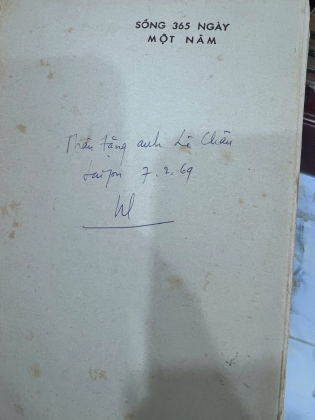 SỐNG 365 NGÀY
MỘT NĂM
Thân tặng anh Lê Châu
Saigon 7.2.69